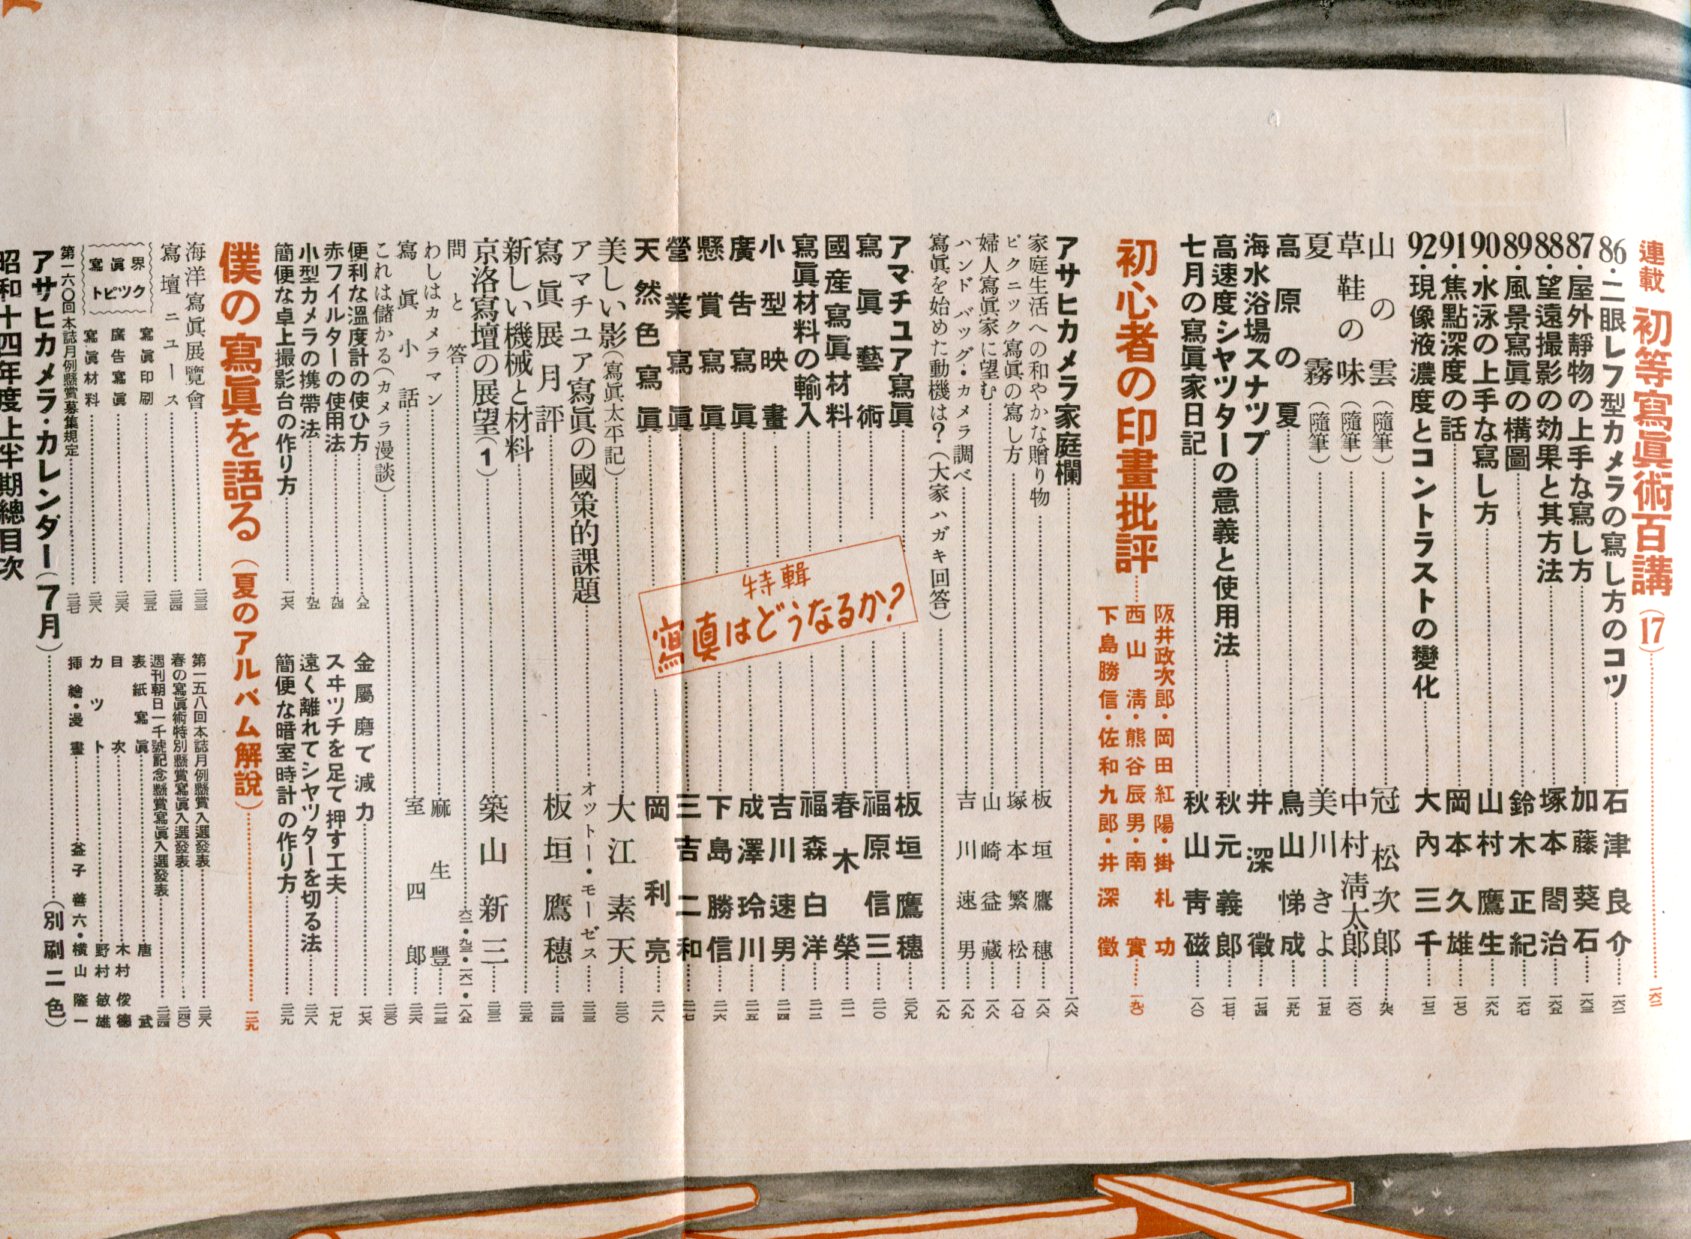 連載 初等寫眞術百講(17)……一六二
86・二眼レフ型カメラの寫し方のコツ……石津良介 一六二
87・屋外靜物の上手な寫し方……加藤葵石 一六三
88・望遠撮影の効果と其方法……塚本閤治 一六五
89・風景寫眞の構圖……鈴木正紀 一六七
90・水泳の上手な寫し方……山村鷹生 一六九
91・焦點深度の話……岡本久雄 一七〇
92・現像液濃度とコントラストの變化……大內三千 一七三
山の雲(隨筆)……冠松次郎
草鞋の味(隨筆)……中村淸太郎
夏霧(隨筆)……美川きよ
高原の夏……鳥山悌成
海水浴場スナツプ……井深徵 一七四
高速度シヤツターの意義と使用法……秋元義郎 一七七
七月の寫眞家日記……秋山靑磁 一八〇
初心者の印畫批評……一九〇
阪井政次郎・岡田紅陽・掛札功
西山淸・熊谷辰男・南實
下島勝信・佐和九郎・井深徵
アサヒカメラ家庭欄……一八六
家庭生活への和やかな贈り物……板垣鷹穗 一八六
ピクニック寫眞の寫し方……塚本繁松 一八七
婦人寫眞家に望む……山崎益藏 一八八
ハンドバッグ・カメラ調べ……吉川速男 一八九
寫眞を始めた動機は?(大家ハガキ回答)……一八九
特輯
寫眞はどうなるか?
アマチユア寫眞……板垣鷹穗 二〇九
寫眞藝術……福原信三 二一〇
國產寫眞材料……春木榮 二一一
寫眞材料の輸入……福森白洋 二一二
小型映畫……吉川速男 二一四
廣吿寫眞……成澤玲川 二一五
懸賞寫眞……下島勝信 二一六
營業寫眞……三吉二和 二一七
天然色寫眞……岡利亮 二一八
美しい影(寫眞太平記)……大江素天 二二〇
アマチユア寫眞の國策的課題……オットー・モーゼス 二二三
寫眞展月評……板垣鷹穗 二二四
新しい機械と材料……
京洛寫壇の展望(1)……築山新三
問と答……
わしはカメラマン……麻生豐
寫眞小話……室四郎
これは儲かる(カメラ漫談)……
便利な溫度計の使ひ方……八五
赤フイルターの使用法……九四
小型カメラの携帶法……九五
簡便な卓上撮影台の作り方……一七六
金屬磨で減力……一七六
スヰツチを足で押す工夫……一七九
遠く離れてシヤツターを切る法……二三八
簡便な暗室時計の作り方……二三九
僕の寫眞を語る(夏のアルバム解說)……
海洋寫眞展覽會……二三三
寫壇ニュース……二三四
寫眞界トピツク
寫眞印刷……二三五
廣告寫眞……二三六
寫眞材料……二三八
第一六〇回本誌月例懸賞募集規定……二三七
第一五八回本誌月例懸賞入選發表……
春の寫眞術特別懸賞寫眞入選發表……二四〇
週刊朝日一千號記念懸賞寫眞入選發表……
表紙寫眞……唐武
目次……木村俊德
カット……野村敏雄
挿繪・漫畫……益子善六・橫山隆一
アサヒカメラ・カレンダー(7月)……(別刷二色)
昭和十四年度上半期總目次